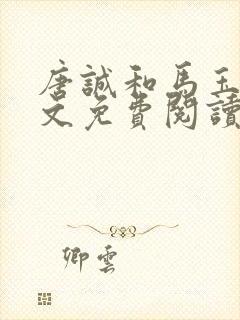 唐誠和馬玉
文免費閱讀
卿雲